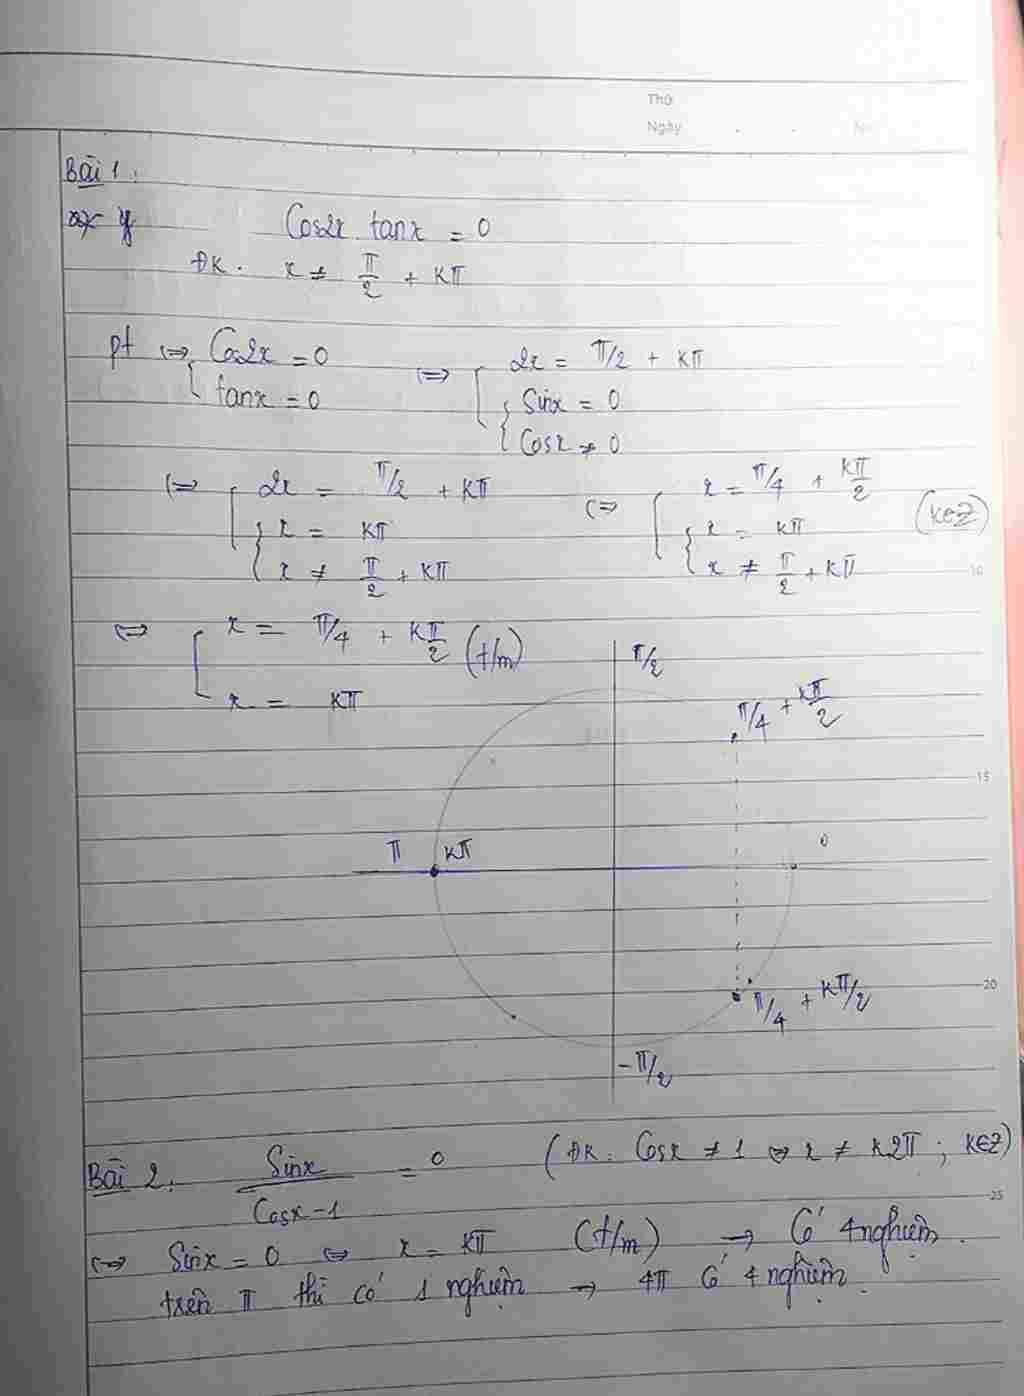 Thứ
Ngày
Bài 1:
Cos2x tanx = 0
ĐK. x ≠ π/2 + kπ
pt ⇔ [ Cos2x = 0 ⇔ [ 2x = π/2 + kπ
tanx = 0 { Sinx = 0
Cosx ≠ 0
⇔ [ 2x = π/2 + kπ ⇔ [ x = π/4 + kπ/2 (k∈Z)
{ x = kπ { x = kπ
x ≠ π/2 + kπ x ≠ π/2 + kπ
10
⇔ [ x = π/4 + kπ/2 (t/m)
x = kπ
π/2
π/4 + kπ/2
15
π kπ 0
20
π/4 + kπ/2
-π/2
Bài 2. Sinx / Cosx-1 = 0 (ĐK: Cosx ≠ 1 ⇔ x ≠ k2π ; k∈Z)
25
⇔ Sinx = 0 ⇔ x = kπ (t/m) → Có 4 nghiệm.
trên π thì có 1 nghiệm → 4π có 4 nghiệm.